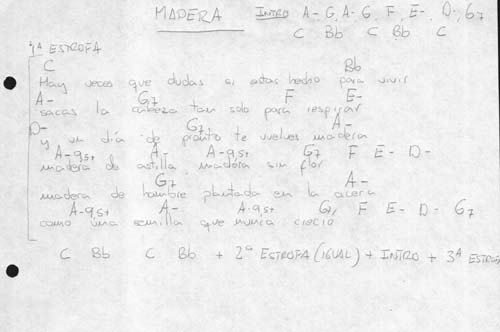 MADERA INTRO A- G, A- G, F, E-, D-, G7
C Bb C Bb C
1ª ESTROFA
C Bb
Hay veces que dudas si estas hecho para vivir
A- G7 F E-
sacas la cabeza tan solo para respirar
D- G7 A-
y un dia de pronto te vuelves madera
A-9,5+ A- A-9,5+ G7 F E- D-
madera de astilla madera sin flor
G7 A-
madera de hombre plantada en la acera
A-9,5+ A- A-9,5+ G7 F E- D- G7
como una semilla que nunca crecio
C Bb C Bb + 2ª ESTROFA (IGUAL) + INTRO + 3ª ESTROF